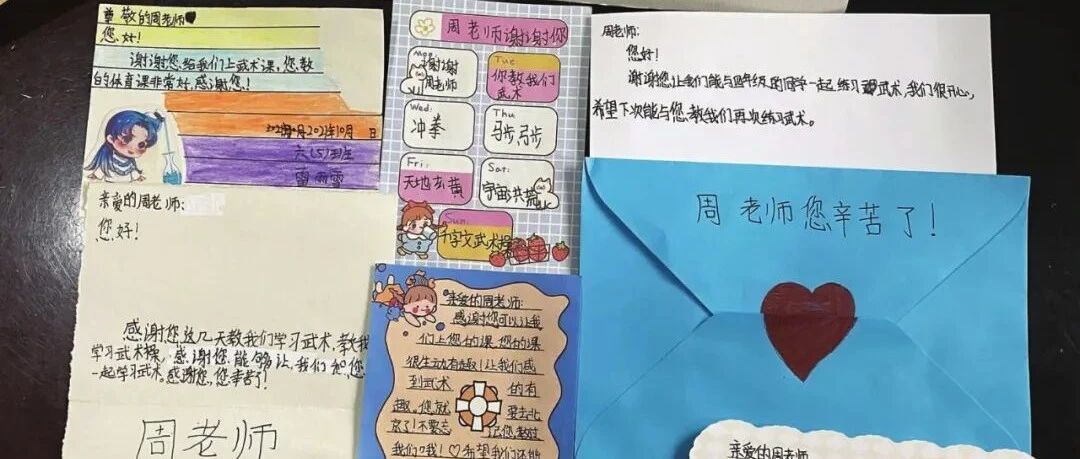 尊敬的周老师
您好!
谢谢您给我们上武术课,您教
的体育课非常好,感谢您!
2021年10月 日
六(5)班
周老师谢谢你
Mon:
谢谢
周老师
Tue
你教我们
武术
Wed:
冲拳
Thu
马步,弓步
Fri:
天地玄黄
Sat:
宇宙洪荒
Sun:
千字文武术操
周老师:
您好!
谢谢您让我们能与四年级的同学一起练习武术,我们很开心,
希望下次能与您,教我们再次练习武术。
亲爱的周老师:
您好!
感谢您这几天教我们学习武术,教我
学习武术操,感谢您能够让我们和您
一起学习武术。感谢您,您辛苦了!
周老师
亲爱的周老师:
感谢您可以让我
们上您的课,您的课
很生动有趣!让我们感
到武术的有
趣。您就要去北
京了!不要忘了您教过
我们哦!♡希望我们还能
周老师您辛苦了!
亲爱的周老师